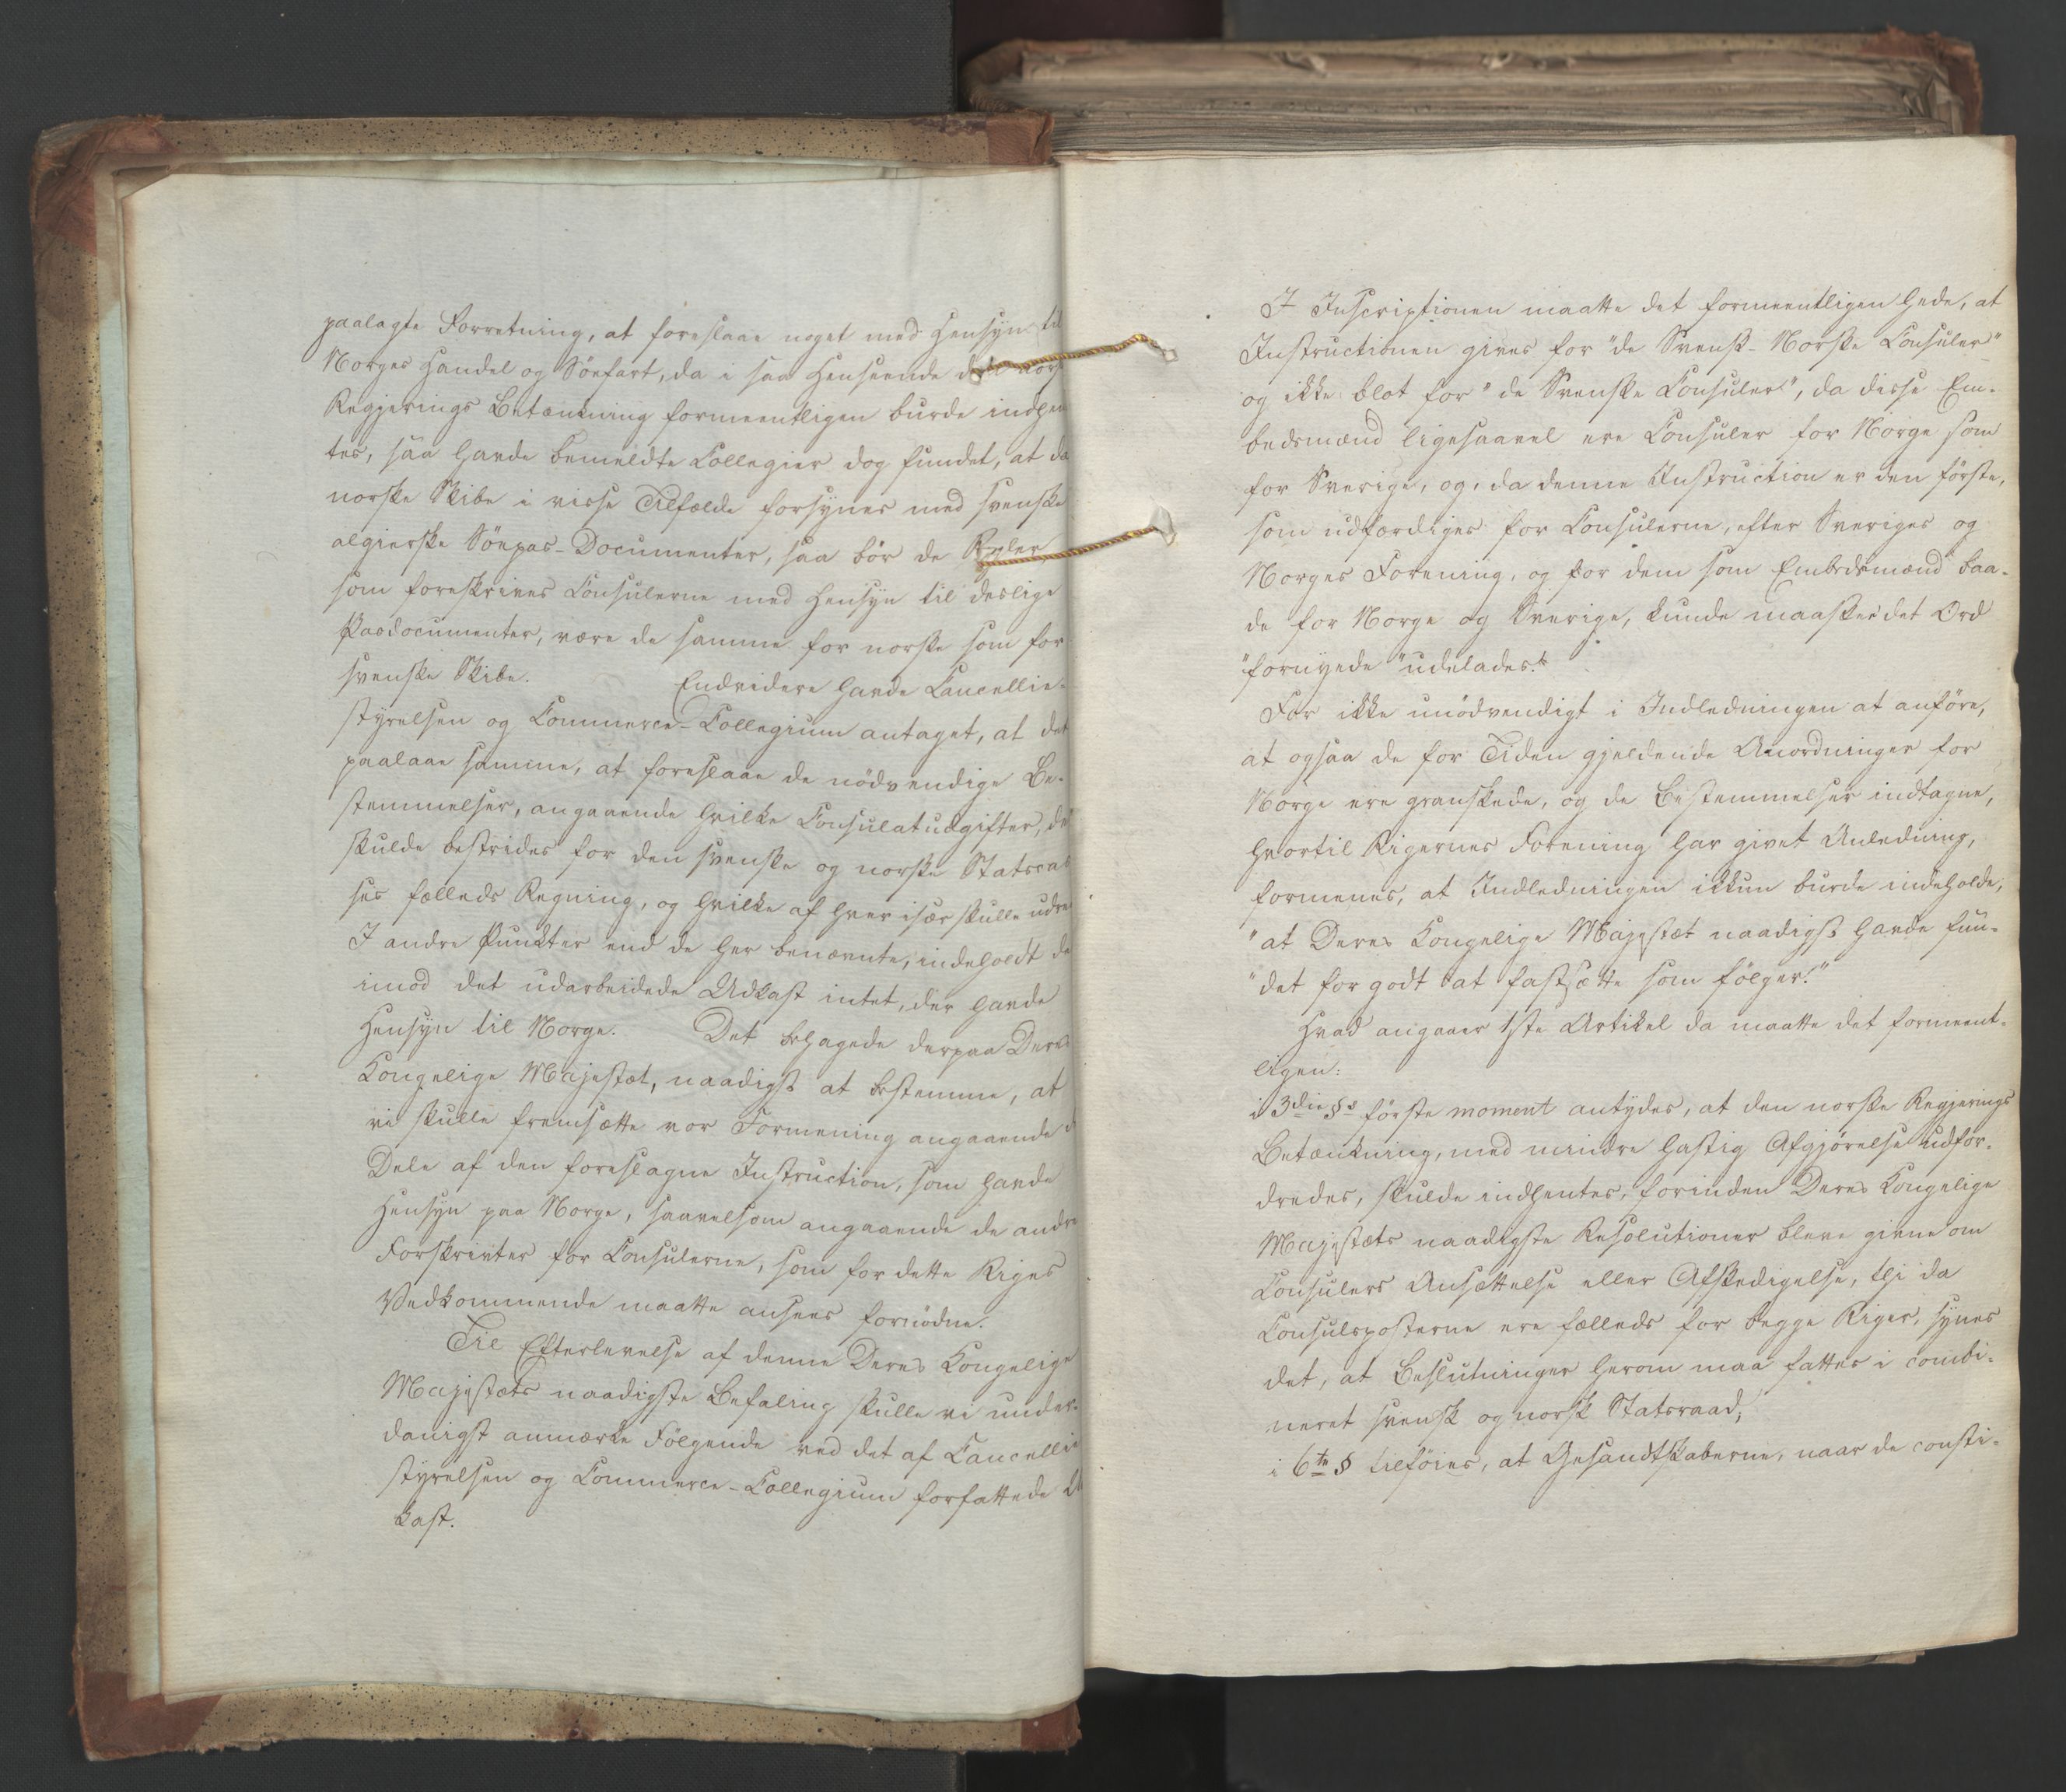 paalagte Forretning, at foreslaae noget med Hensyn til
Norges Handel og Söefart, da i saa Henseende den nors
Regjerings Betænkning formeentligen burde indhen
tes, saa havde bemeldte Collegier dog fundet, at da
norske Skibe i visse Tilfælde forsynes med svenske
algierske Söepas-Documenter, saa bör de Regler
som foreskrives Consulerne med Hensyn til deslige
Pasdocumenter, være de samme for norske som for
svenske Skibe. Endvidere havde Cancellie-
styrelsen og Commerce-Collegium antaget, at det
paalaae samme, at foreslaae de nödvendige Be-
stemmelser, angaaende hvilke Consulatudgifter, der
skulde bestrides for den svenske og norske Statscas
ses fælleds Regning, og hvilke af hver især skulle udre
I andre Punkter end de her benævnte, indeholdt der
imod det udarbeidede Udkast intet, der havde
Hensyn til Norge. Det behagede derpaa Deres
Kongelige Majestæt, naadigst at bestemme, at
vi skulle fremsætte vor Formening angaaende d
Dele af den foreslagne Instruction, som havde
Hensyn paa Norge, saavelsom angaaende de andre
Forskrivter for Consulerne, som for dette Riges
Vedkommende maatte ansees fornödne.
Til Efterlevelse af denne Deres Kongelige
Majestæts naadigste Befaling skulle vi under-
danigst anmærke Fölgende ved det af Cancellie
styrelsen og Commerce-Collegium forfattede Ud
kast.
I Inscriptionen maatte det formeentligen hede, at
Instructionen gives for "de Svensk-Norske Consuler"
og ikke blot for "de Svenske Consuler", da disse Em-
bedsmænd ligesaavel ere Consuler for Norge som
for Sverige, og, da denne Instruction er den förste,
som udfærdiges for Consulerne, efter Sveriges og
Norges Forening, og for dem som Embedsmænd baa-
de for Norge og Sverige, kunde maaskee det Ord
"fornyede" udelades.
For ikke unödvendigt i Indledningen at anföre,
at ogsaa de for Tiden gjeldende Anordninger for
Norge ere granskede, og de Bestemmelser indtagne,
hvortil Rigernes Forening har givet Anledning,
formenes, at Indledningen ikkun burde indeholde,
"at Deres Kongelige Majestæt naadigst havde fun-
"det for godt at fastsætte som fölger."
Hvad angaaer 1ste Artikel da maatte det formeent-
ligen:
i 3die §s förste moment antydes, at den norske Regjerings
Betænkning, med mindre hastig Afgjörelse udfor-
dredes, skulde indhentes, forinden Deres Kongelige
Majestæts naadigste Resolutioner bleve givne om
Consulers Ansættelse eller Afskedigelse, thi da
Consulsposterne ere fælleds for begge Riger, synes
det, at Beslutninger herom maa fattes i combi-
neret svensk og norsk Statsraad;
i 6te § tilföies, at Gesandtskaberne, naar de consti-